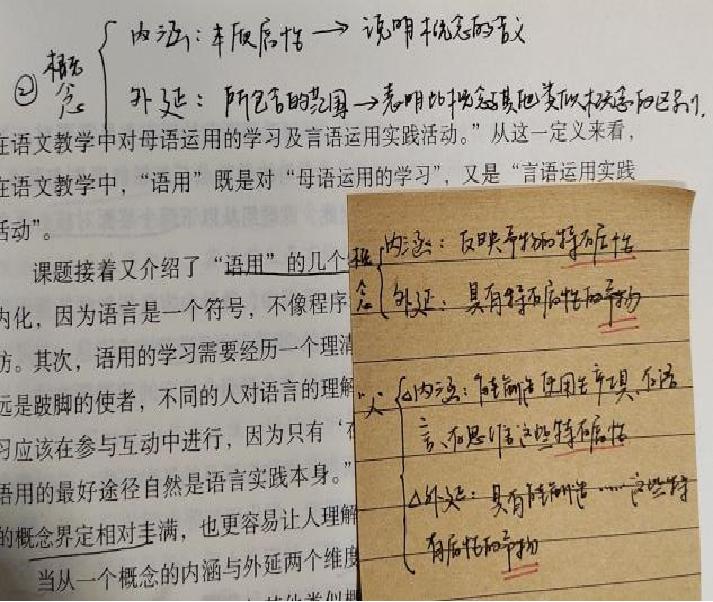 ② 概念
内涵：本质属性→说明概念的含义
外延：所包含的范围→表明此概念与其他类似概念的区别。
在语文教学中对母语运用的学习及言语运用实践活动。”从这一定义来看，
在语文教学中，“语用”既是对“母语运用的学习”，又是“言语运用实践
活动”。
课题接着又介绍了“语用”的几个
内化，因为语言是一个符号，不像程序
仿。其次，语用的学习需要经历一个理
远是跛脚的使者，不同的人对语言的理解
习应该在参与互动中进行，因为只有‘在
语用的最好途径自然是语言实践本身。”
的概念界定相对丰满，也更容易让人理解
当从一个概念的内涵与外延两个维度
概念
内涵：反映事物的特有属性
外延：具有特有属性的事物
“人”
△内涵：能制造使用生产工具、有语
言、有思维这些特有属性
△外延：具有能制造……这些特
有属性的事物